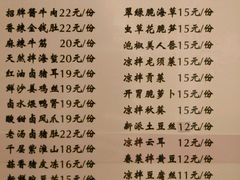 招牌酱牛肉22元/份
香辣金钱肚22元/份
麻辣牛筋 20元/份
天然拌海蜇20元/份
红油卤猪耳19元/份
鲜沙姜鸡丝19元/份
卤水煨鸭肾19元/份
酸甜卤凤爪19元/份
老汤卤猪肚22元/份
千层素腐山18元/份
蒜香猪皮冻16元/份
翠绿脆海草15元/份
虫草花脆笋15元/份
泡椒美人唇15元/份
凉拌龙须菜15元/份
凉拌贡菜 15元/份
开胃脆萝卜15元/份
凉拌秋葵 15元/份
新派土豆丝12元/份
凉拌云耳 12元/份
春菜拌黄豆12元/份
凉拌豆腐丝11元/份